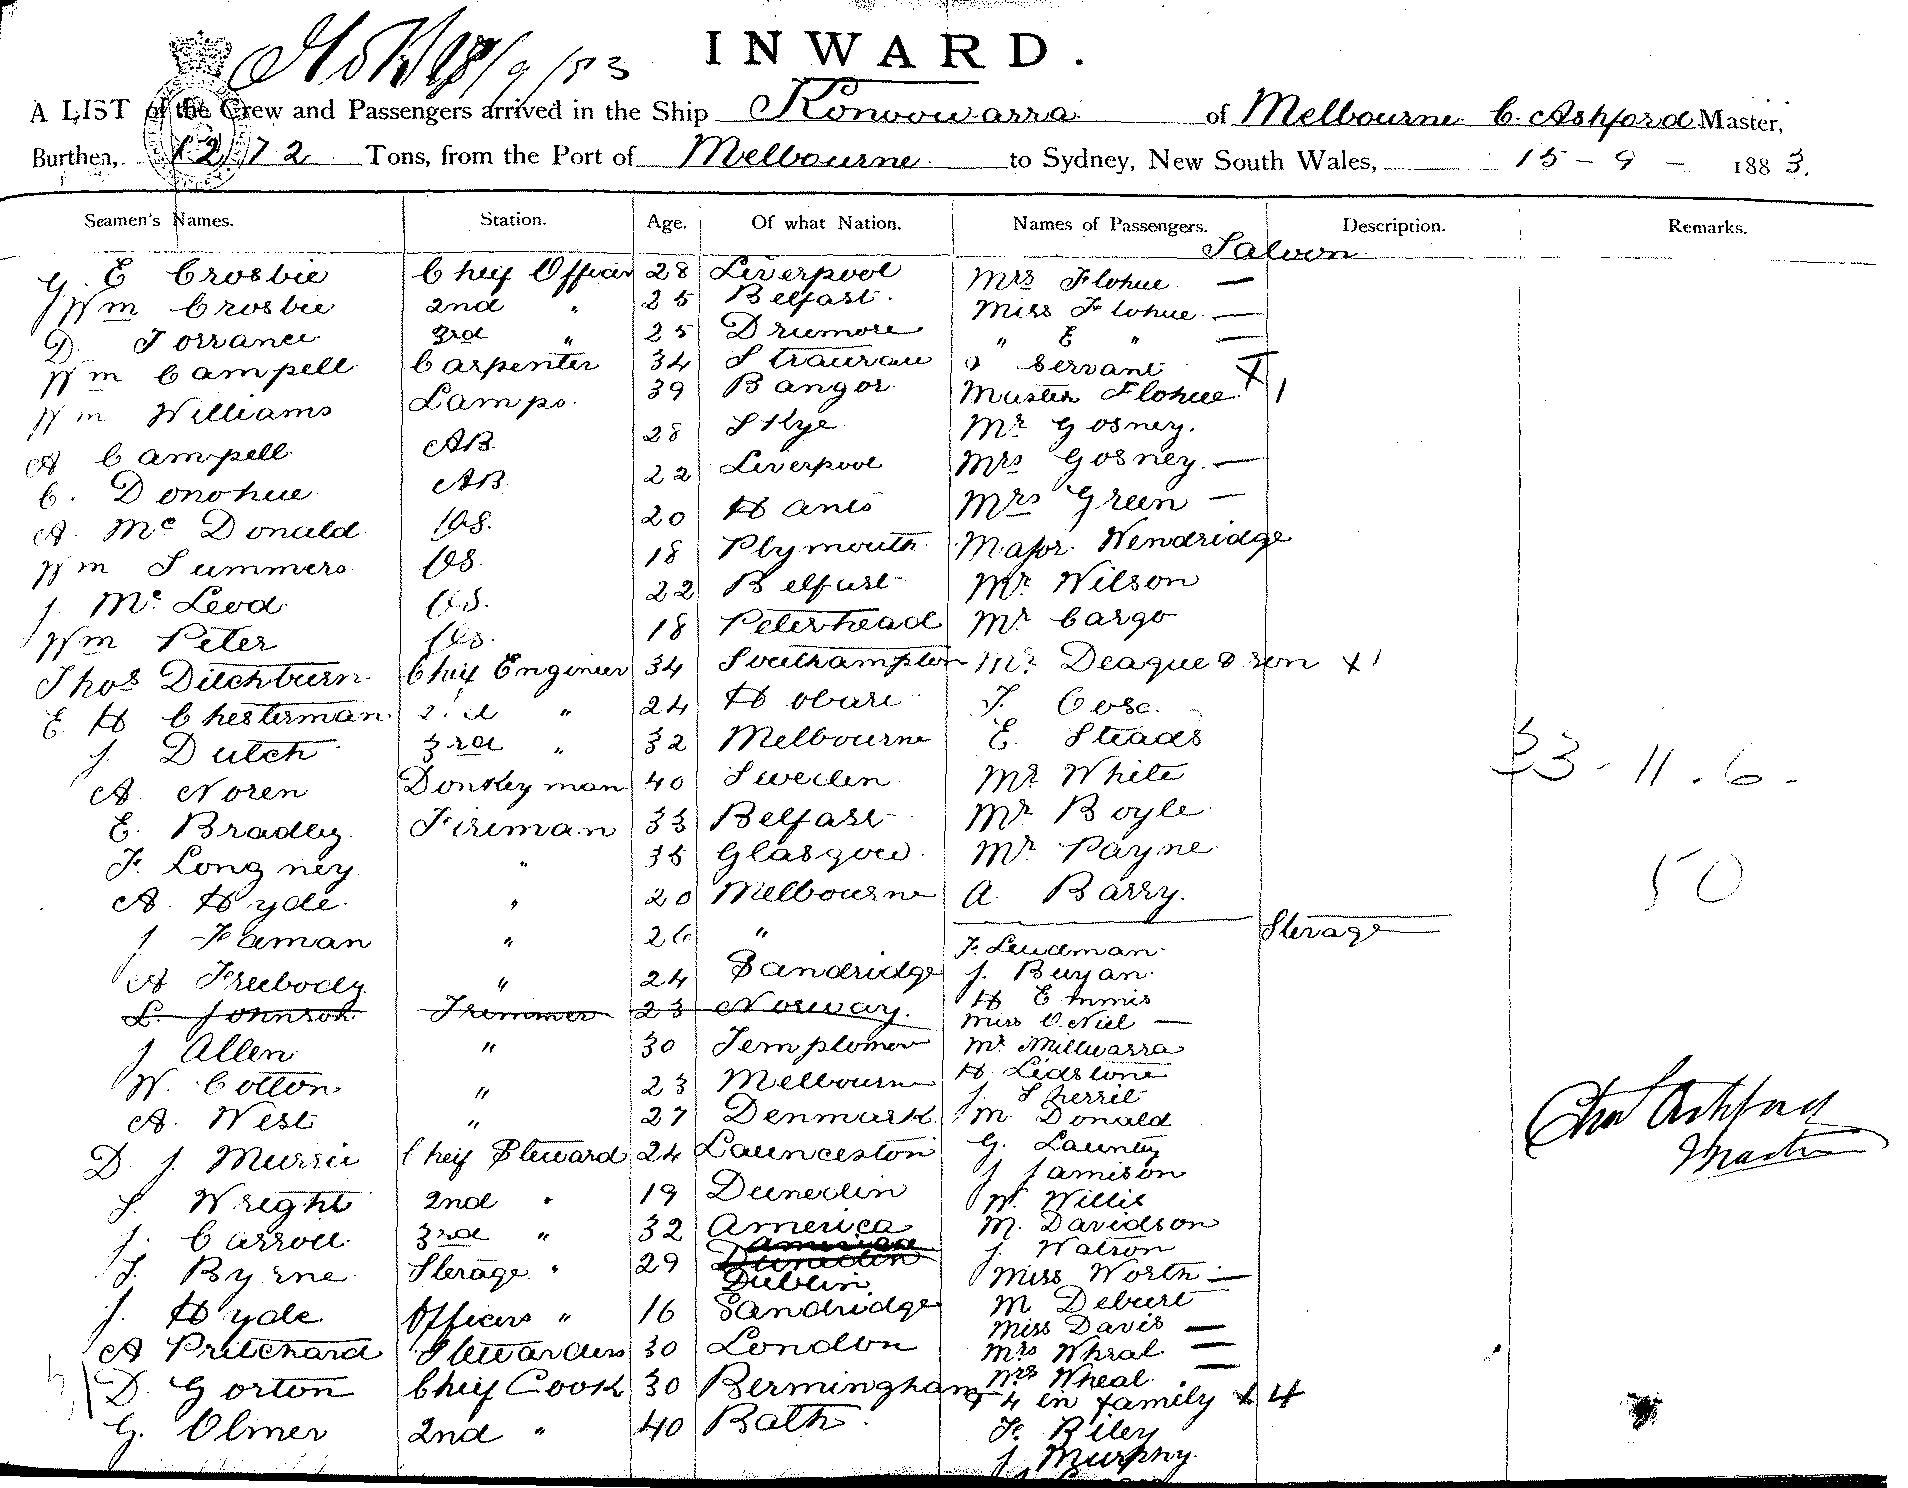 INWARD.
A LIST of the Crew and Passengers arrived in the Ship Konoowarra of Melbourne C. Ashford Master,
Burthen, 1272 Tons, from the Port of Melbourne to Sydney, New South Wales, 15 - 9 - 1883.
Seamen's Names. Station. Age. Of what Nation. Names of Passengers. Description. Remarks.
Saloon
G. E Crosbie Chief Officer 28 Liverpool Mrs Flohue —
Wm Crosbie 2nd " 25 Belfast. Miss Flohue —
D. Torrance 3rd " 25 Drumore " E " —
Wm Campell Carpenter 34 Stranrau & Servant X
Wm Williams Lamps. 39 Bangor Master Flohue 1
A Campell AB 28 Skye Mr Gosney.
C. Donohue AB 22 Liverpool Mrs Gosney —
A. Mc Donald OS. 20 Hants Mrs Green —
Wm Summers OS. 18 Plymouth Major Wendridge
J. Mc Leod OS. 22 Belfast Mr Wilson
Wm Peter OS. 18 Peterhead Mr Cargo
Thos Ditchburn Chief Engineer 34 Southampton Mr Deague & son X 1
E H Chesterman 2nd " 24 Hobart T.
J. Dutch 3rd " 32 Melbourne E. Steads
A Noren Donkeyman 40 Sweden Mr White
33 - 11 . 6 .
E. Bradley Fireman 33 Belfast Mr Boyle
F. Longney " 35 Glasgow Mr Payne
50
A. Hyde " 20 Melbourne A. Barry.
J Faman " 26 " Sterage
F. Leudman
A Freebody " 24 Sandridge J. Buyan
L. Johnson Trimmer 23 Norway. H Emmis
Miss O.Niel —
J Allen " 30 Templomor Mr Millwarra
W. Cotton " 23 Melbourne H Lidstone
J. Sherrit
A. West " 27 Denmark M Donald
D. J. Murrie Chief Steward 24 Launceston G. Launty
J Jamison
Chas Ashford
Master
S. Wright 2nd " 19 Dunedin W. Willis
J. Carroll 3rd " 32 America M. Davidson
J Watson
T. Byrne Sterage " 29 Dublin Miss Worth —
J. Hyde Officers " 16 Sandridge M Deburt
Miss Davis —
A Pritchard Stewardess 30 London Mrs Whral —
D. Gorton Chief Cook 30 Bermingham Mrs Wheal —
& 4 in family X 4
G. Olmer 2nd " 40 Bath F. Riley
J Murphy